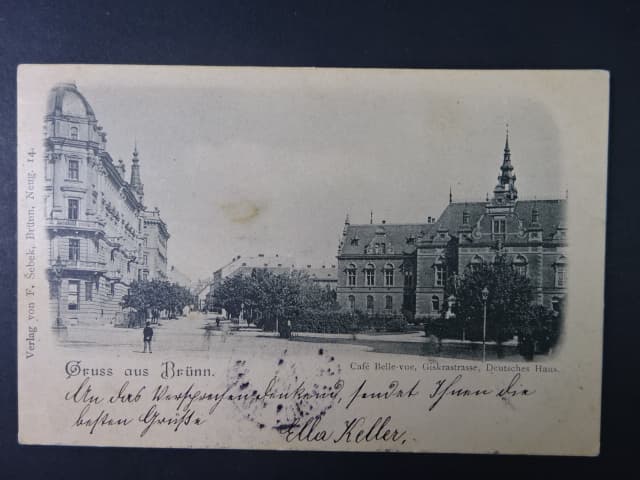 Verlag von F. Šebek, Brünn, Neug. 14.
Gruss aus Brünn.
Café Belle-vue, Giskrastrasse, Deutsches Haus.
An das Versprechen denkend, sendet Ihnen die
besten Grüße
Ella Keller.